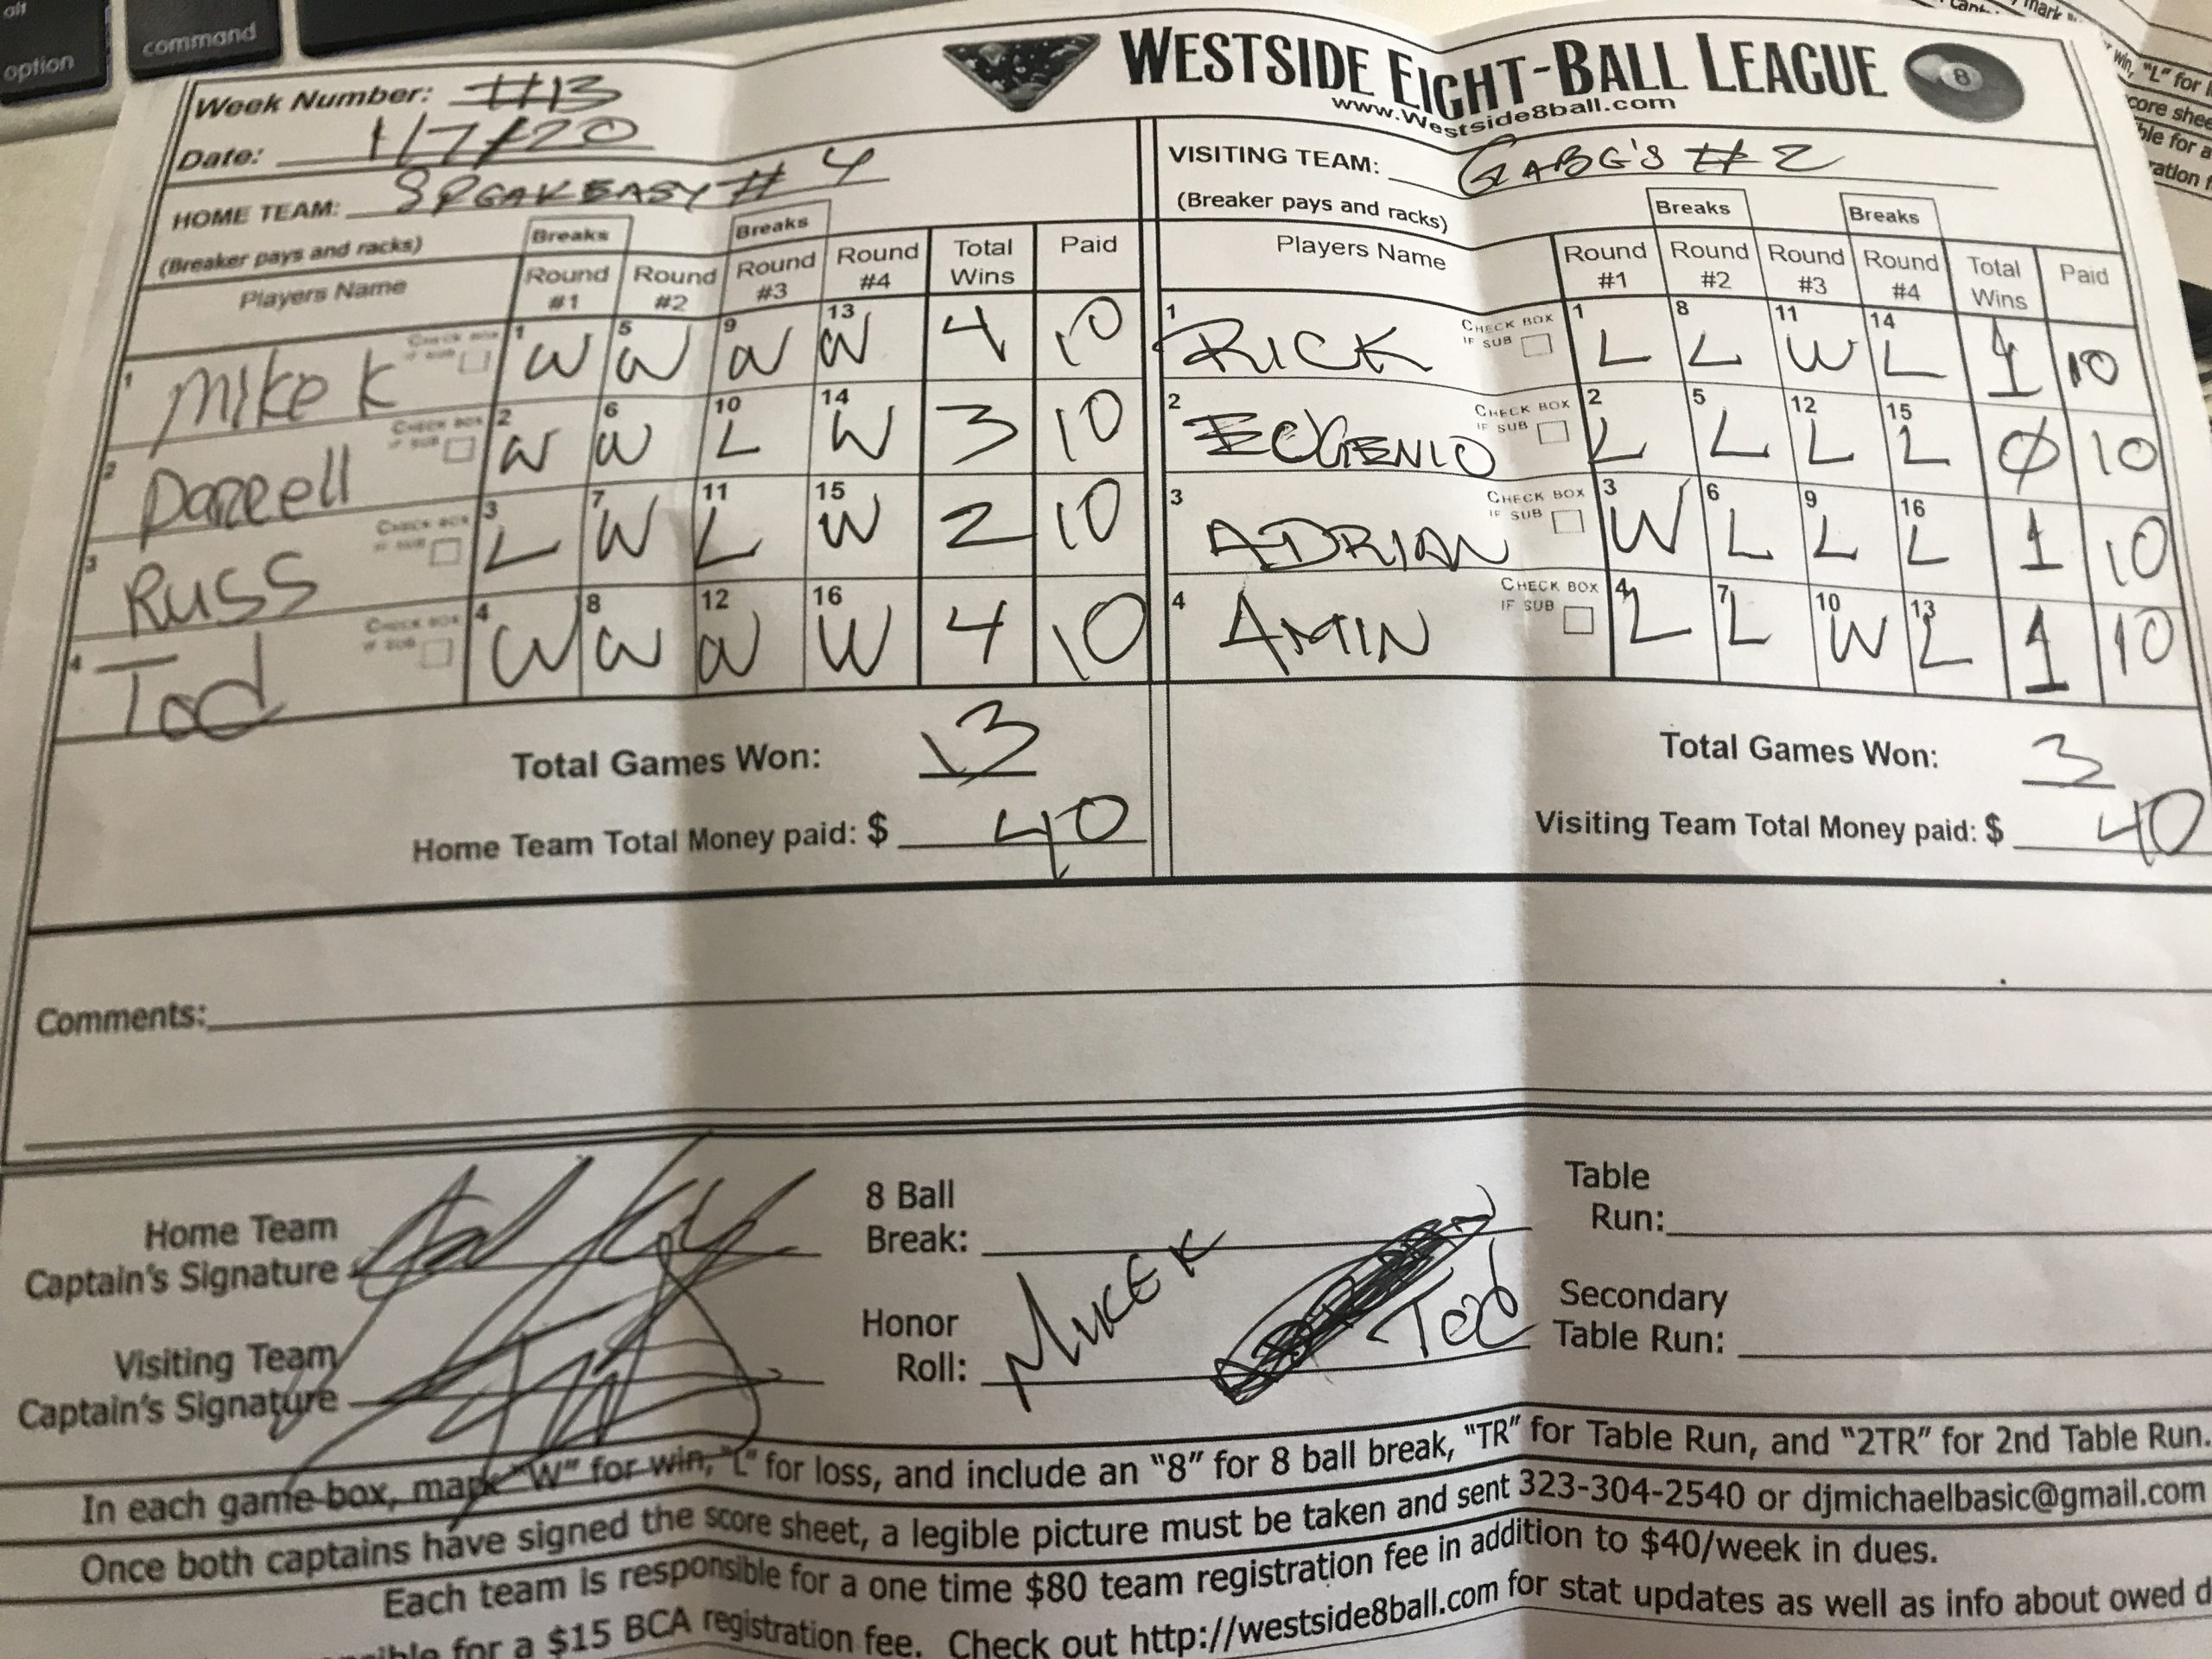 alt
option
command
WESTSIDE EIGHT-BALL LEAGUE
www.Westside8ball.com
8
Week Number: #13
Date: 1/7/20
HOME TEAM: SPEAKEASY # 4
(Breaker pays and racks)
Breaks Breaks
Players Name Round #1 Round #2 Round #3 Round #4 Total Wins Paid
1 Mike K CHECK BOX IF SUB 1 W 5 W 9 W 13 W 4 10
2 Darrell CHECK BOX IF SUB 2 W 6 W 10 L 14 W 3 10
3 RUSS CHECK BOX IF SUB 3 L 7 W 11 L 15 W 2 10
4 Tod CHECK BOX IF SUB 4 W 8 W 12 W 16 W 4 10
Total Games Won: 13
Home Team Total Money paid: $ 40
VISITING TEAM: GABG'S #2
(Breaker pays and racks)
Breaks Breaks
Players Name Round #1 Round #2 Round #3 Round #4 Total Wins Paid
1 RICK CHECK BOX IF SUB 1 L 8 L 11 W 14 L 1 10
2 EUGENIO CHECK BOX IF SUB 2 L 5 L 12 L 15 L 0 10
3 ADRIAN CHECK BOX IF SUB 3 W 6 L 9 L 16 L 1 10
4 AMIN CHECK BOX IF SUB 4 L 7 L 10 W 13 L 1 10
Total Games Won: 3
Visiting Team Total Money paid: $ 40
Comments:
Home Team Captain's Signature
Visiting Team Captain's Signature
8 Ball Break:
Honor Roll: MIKE K Tod
Table Run:
Secondary Table Run:
In each game box, mark "W" for win, "L" for loss, and include an "8" for 8 ball break, "TR" for Table Run, and "2TR" for 2nd Table Run.
Once both captains have signed the score sheet, a legible picture must be taken and sent 323-304-2540 or djmichaelbasic@gmail.com
Each team is responsible for a one time $80 team registration fee in addition to $40/week in dues.
for a $15 BCA registration fee. Check out http://westside8ball.com for stat updates as well as info about owed d